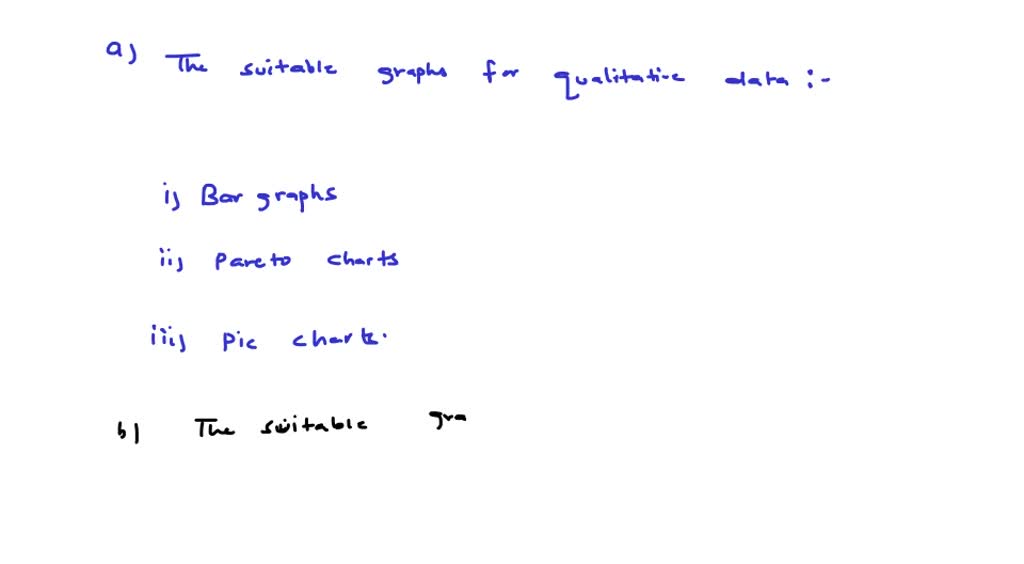 a) The suitable graphs for qualitative data :-
i) Bar graphs
ii) Pareto charts
iii) Pie charts.
b) The suitable gra